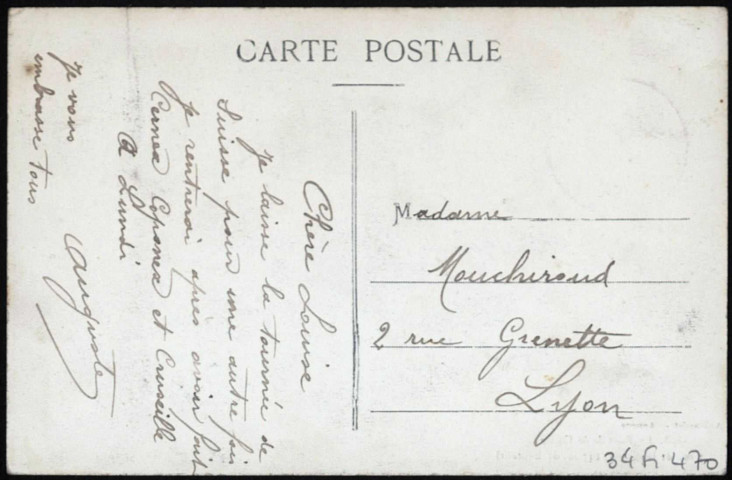 CARTE POSTALE
Chère Louise
Je laisse la tournée de
Suisse pour une autre fois
Je rentrerai après avoir fait
Cernex Copponex et Cruseille
A Lundi
Je vous
embrasse tous
Auguste
Madame
Mouchiroud
2 rue Grenette
Lyon
34 Fi 470